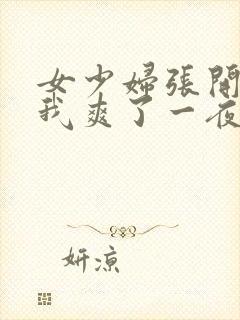 女少婦張開
我爽了一夜
妍涼